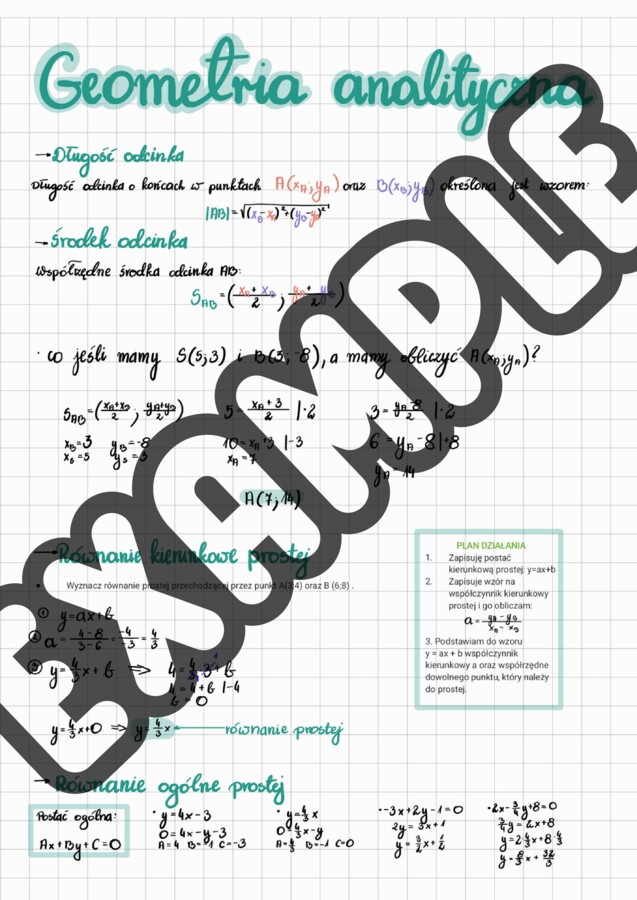 Geometria analityczna
→ Długość odcinka
Długość odcinka o końcach w punktach A(xA; yA) oraz B(xB; yB) określona jest wzorem:
|AB| = √(xB-xA)²+(yB-yA)²
→ Środek odcinka
Współrzędne środka odcinka AB:
SAB = (xA + xB / 2 ; yA + yB / 2)
· co jeśli mamy S(5;3) i B(3;-8), a mamy obliczyć A(xA; yA)?
SAB = (xA+xB / 2 ; yA+yB / 2) 5 = xA + 3 / 2 |·2 3 = yA-8 / 2 |·2
xB=3 yB=-8 10 = xA+3 |-3 6 = yA-8 |+8
xS=5 yS=3 xA = 7 yA = 14
A(7; 14)
→ Równanie kierunkowe prostej
• Wyznacz równanie prostej przechodzącej przez punkt A(3;4) oraz B (6;8) .
① y=ax+b
② a = 4-8 / 3-6 = -4 / -3 = 4/3
③ y = 4/3 x + b ⇒ 4 = 4/3 · 3 + b
4 = 4+b |-4
b = 0
y = 4/3 x+0 ⇒ y = 4/3 x równanie prostej
PLAN DZIAŁANIA
1. Zapisuję postać
kierunkową prostej: y=ax+b
2. Zapisuje wzór na
współczynnik kierunkowy
prostej i go obliczam:
a = yA - yB / xA - xB
3. Podstawiam do wzoru
y = ax + b współczynnik
kierunkowy a oraz współrzędne
dowolnego punktu, który należy
do prostej.
→ Równanie ogólne prostej
Postać ogólna:
Ax+By+C=0
· y=4x-3
0=4x-y-3
A=4 B=-1 C=-3
· y=4/3 x
0=4/3 x-y
A=4/3 B=-1 C=0
· -3x+2y-1=0
2y = 3x+1
y = 3/2 x + 1/2
· 2x - 3/4 y+8=0
3/4 y = 2x+8
y=2·4/3 x+8·4/3
y = 8/3 x + 32/3
EXAMPLE